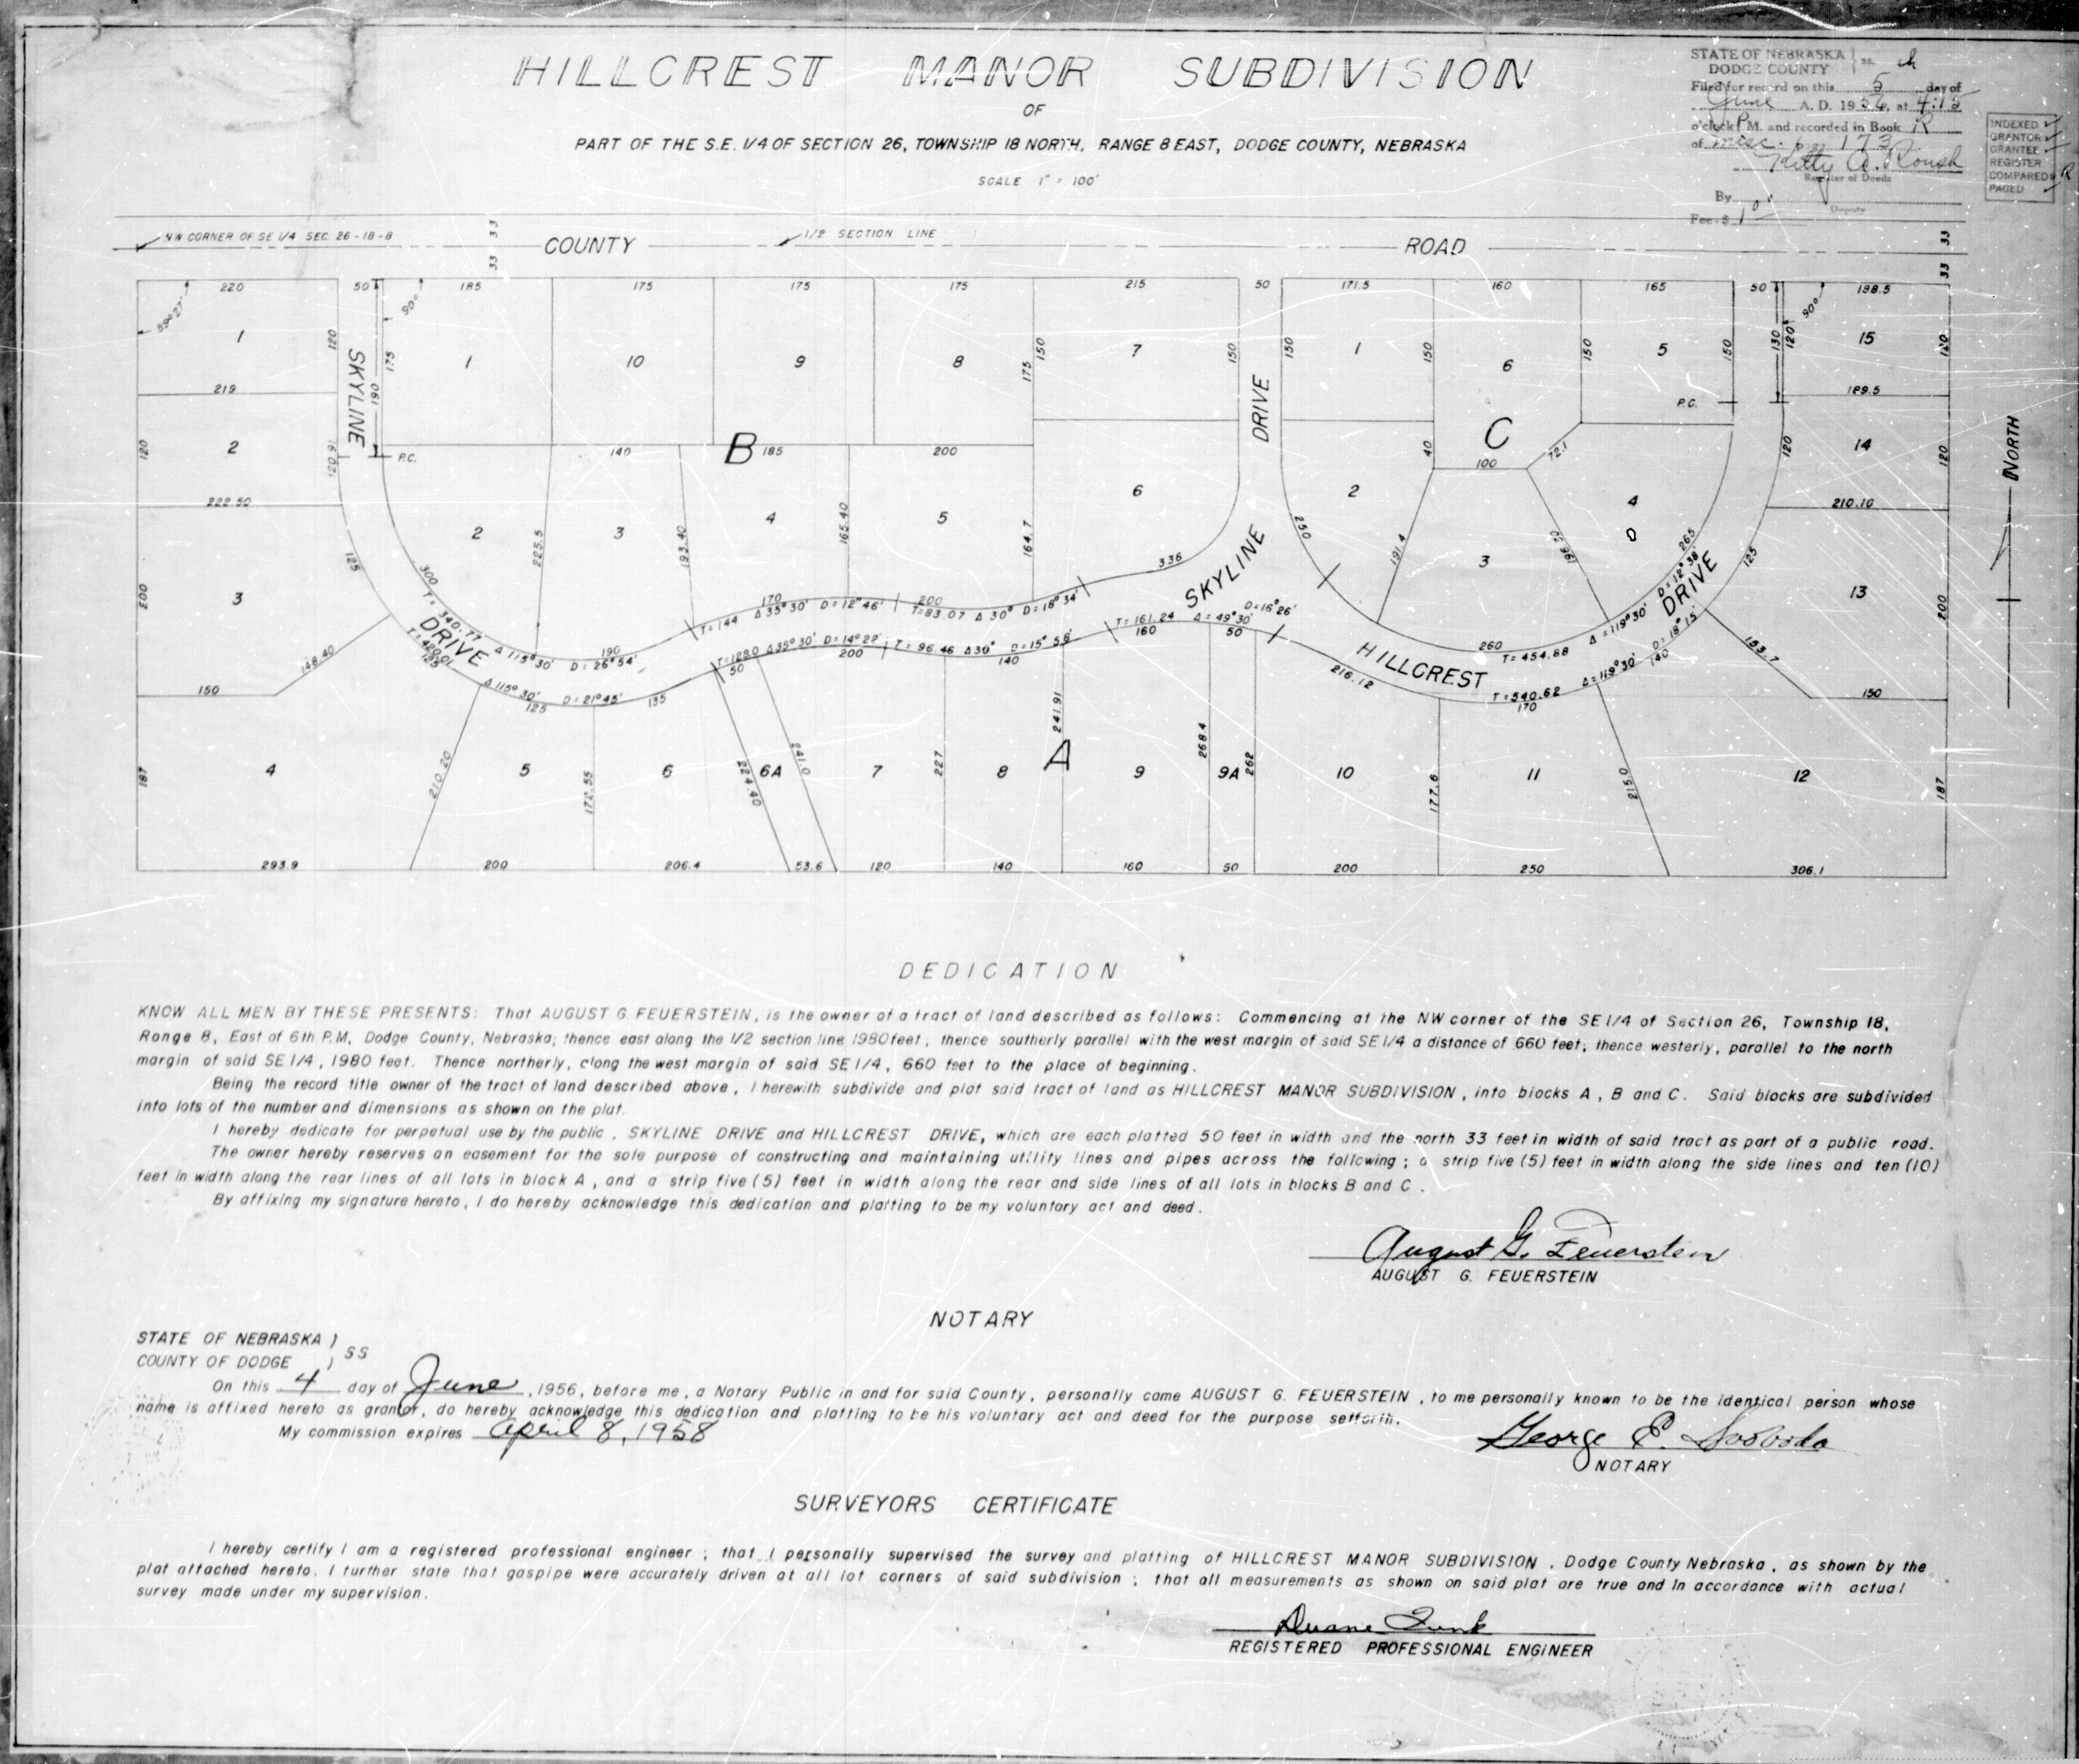 HILLCREST MANOR SUBDIVISION
OF
PART OF THE S.E. 1/4 OF SECTION 26, TOWNSHIP 18 NORTH, RANGE 8 EAST, DODGE COUNTY, NEBRASKA
SCALE 1" = 100'
STATE OF NEBRASKA } ss.
DODGE COUNTY
Filed for record on this 5 day of
June A. D. 1956, at 4:15
o'clock P M. and recorded in Book R
of misc. pg 173
Kitty A. Roush
Register of Deeds
By
Deputy
Fee $ 1 00
INDEXED
GRANTOR
GRANTEE
REGISTER
COMPARED
PAGED
NW CORNER OF SE 1/4 SEC. 26-18-8
33 33
COUNTY
1/2 SECTION LINE
ROAD
33 33
220 50 185 175 175 175 215 50 171.5 160 165 50 198.5
89° 27' 90° 90°
1 120 SKYLINE 175 190 1 10 9 8 175 150 7 150 DRIVE 150 1 150 6 150 5 150 130 120 15 120
219 P.C. 189.5
120 2 120.91 P.C. 140 B 185 200 C 40 100 72.1 120 14 120
222.50 210.10
200 3 125 2 225.5 3 193.40 4 165.40 5 164.7 6 336 SKYLINE 250 2 191.4 3 196.22 4 D 265 125 13 200
300 T= 340.77 Δ 115° 30' D= 26° 54' 190
DRIVE
T= 420.01 125 Δ 115° 30' D= 21° 45' 125 135
T= 144 170 Δ 35° 30' D= 12° 46' 200 T= 83.07 Δ 30° D= 18° 34'
50 Δ 35° 30' D= 14° 29' 200 T= 96.46 Δ 30° D= 15° 58' 140
T= 161.24 Δ= 49° 30' D= 16° 26' 160 50
HILLCREST DRIVE
260 T= 454.88 Δ = 119° 30' D= 12° 38'
216.12 T= 540.62 170 Δ= 119° 30' D= 18° 15' 140
150 148.40 153.7 150
187 4 210.20 5 172.55 6 224.40 6A 241.0 7 227 8 241.91 A 9 268.4 9A 262 10 177.6 11 215.0 12 187
293.9 200 206.4 53.6 120 140 160 50 200 250 306.1
NORTH
DEDICATION
KNOW ALL MEN BY THESE PRESENTS: That AUGUST G FEUERSTEIN, is the owner of a tract of land described as follows: Commencing at the NW corner of the SE 1/4 of Section 26, Township 18,
Range 8, East of 6th P.M, Dodge County, Nebraska; thence east along the 1/2 section line 1980 feet; thence southerly parallel with the west margin of said SE 1/4 a distance of 660 feet; thence westerly, parallel to the north
margin of said SE 1/4, 1980 feet. Thence northerly, along the west margin of said SE 1/4, 660 feet to the place of beginning.
Being the record title owner of the tract of land described above, I herewith subdivide and plat said tract of land as HILLCREST MANOR SUBDIVISION, into blocks A, B and C. Said blocks are subdivided
into lots of the number and dimensions as shown on the plat.
I hereby dedicate for perpetual use by the public, SKYLINE DRIVE and HILLCREST DRIVE, which are each platted 50 feet in width and the north 33 feet in width of said tract as part of a public road.
The owner hereby reserves an easement for the sole purpose of constructing and maintaining utility lines and pipes across the following; a strip five (5) feet in width along the side lines and ten (10)
feet in width along the rear lines of all lots in block A, and a strip five (5) feet in width along the rear and side lines of all lots in blocks B and C.
By affixing my signature hereto, I do hereby acknowledge this dedication and platting to be my voluntary act and deed.
August G. Feuerstein
AUGUST G. FEUERSTEIN
NOTARY
STATE OF NEBRASKA )
COUNTY OF DODGE ) SS
On this 4 day of June, 1956, before me, a Notary Public in and for said County, personally came AUGUST G. FEUERSTEIN, to me personally known to be the identical person whose
name is affixed hereto as grantor, do hereby acknowledge this dedication and platting to be his voluntary act and deed for the purpose setforth.
My commission expires April 8, 1958
George E. Svoboda
NOTARY
SURVEYORS CERTIFICATE
I hereby certify I am a registered professional engineer; that I personally supervised the survey and platting of HILLCREST MANOR SUBDIVISION, Dodge County Nebraska, as shown by the
plat attached hereto. I further state that gaspipe were accurately driven at all lot corners of said subdivision; that all measurements as shown on said plat are true and in accordance with actual
survey made under my supervision.
Duane Funk
REGISTERED PROFESSIONAL ENGINEER